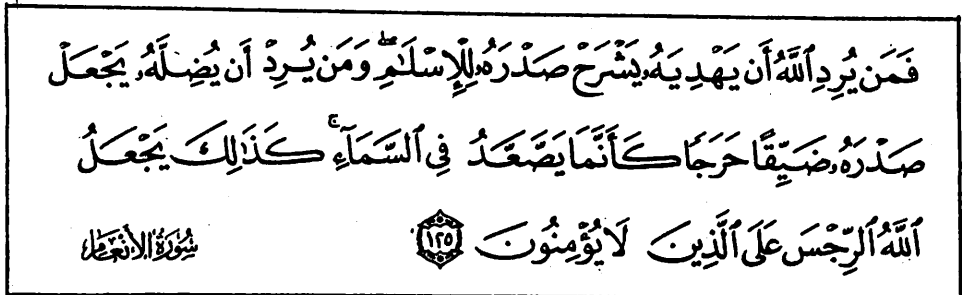 فَمَن يُرِدِ ٱللَّهُ أَن يَهْدِيَهُۥ يَشْرَحْ صَدْرَهُۥ لِلْإِسْلَٰمِ ۖ وَمَن يُرِدْ أَن يُضِلَّهُۥ يَجْعَلْ
صَدْرَهُۥ ضَيِّقًا حَرَجًا كَأَنَّمَا يَصَّعَّدُ فِى ٱلسَّمَآءِ ۚ كَذَٰلِكَ يَجْعَلُ
ٱللَّهُ ٱلرِّجْسَ عَلَى ٱلَّذِينَ لَا يُؤْمِنُونَ ١٢٥ سُورَةُ الأَنْعَامِ